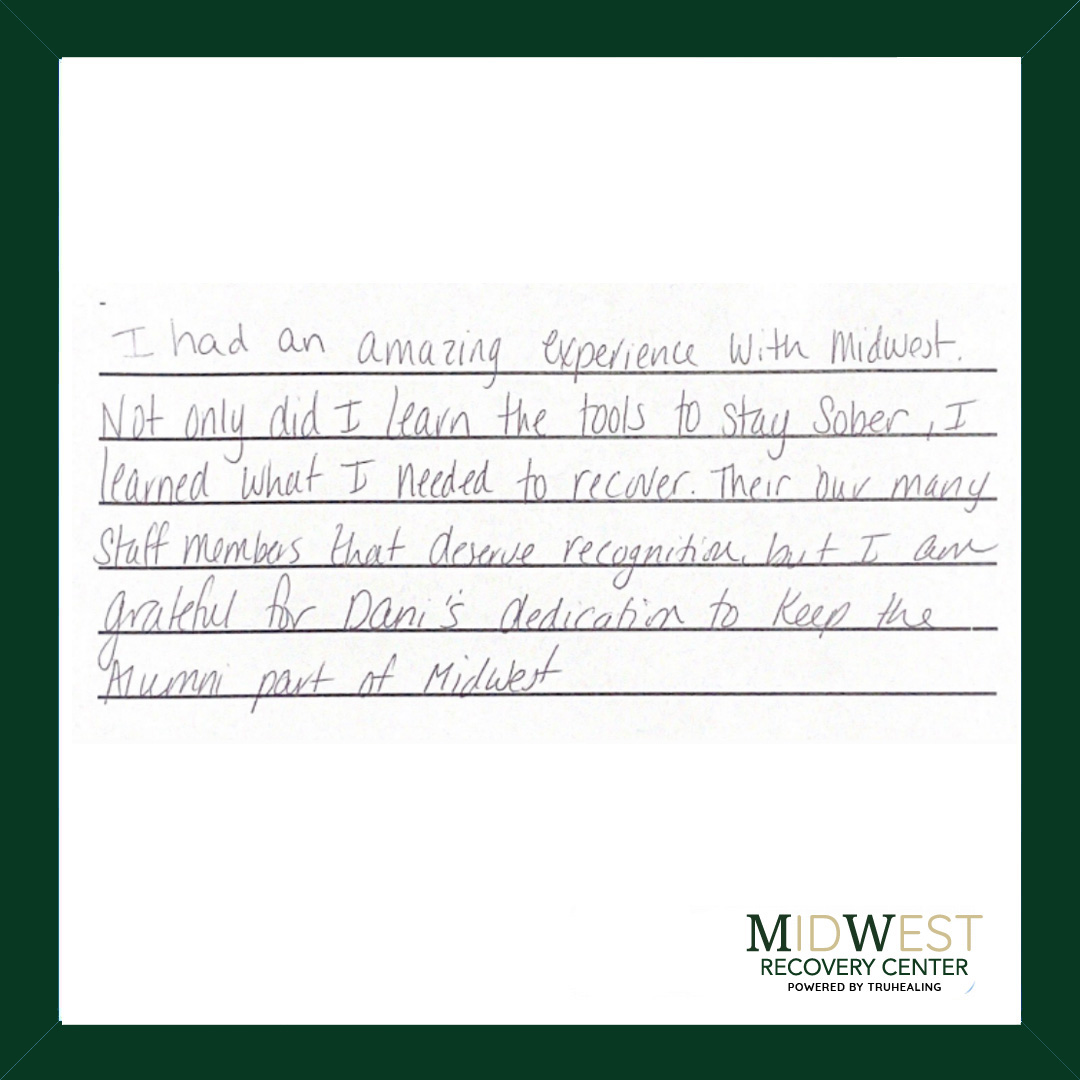 I had an amazing experience with Midwest.
Not only did I learn the tools to stay Sober, I
learned what I needed to recover. Their our many
Staff members that deserve recognition, but I am
grateful for Dani's dedication to Keep the
Alumni part of Midwest
MIDWEST
RECOVERY CENTER
POWERED BY TRUHEALING